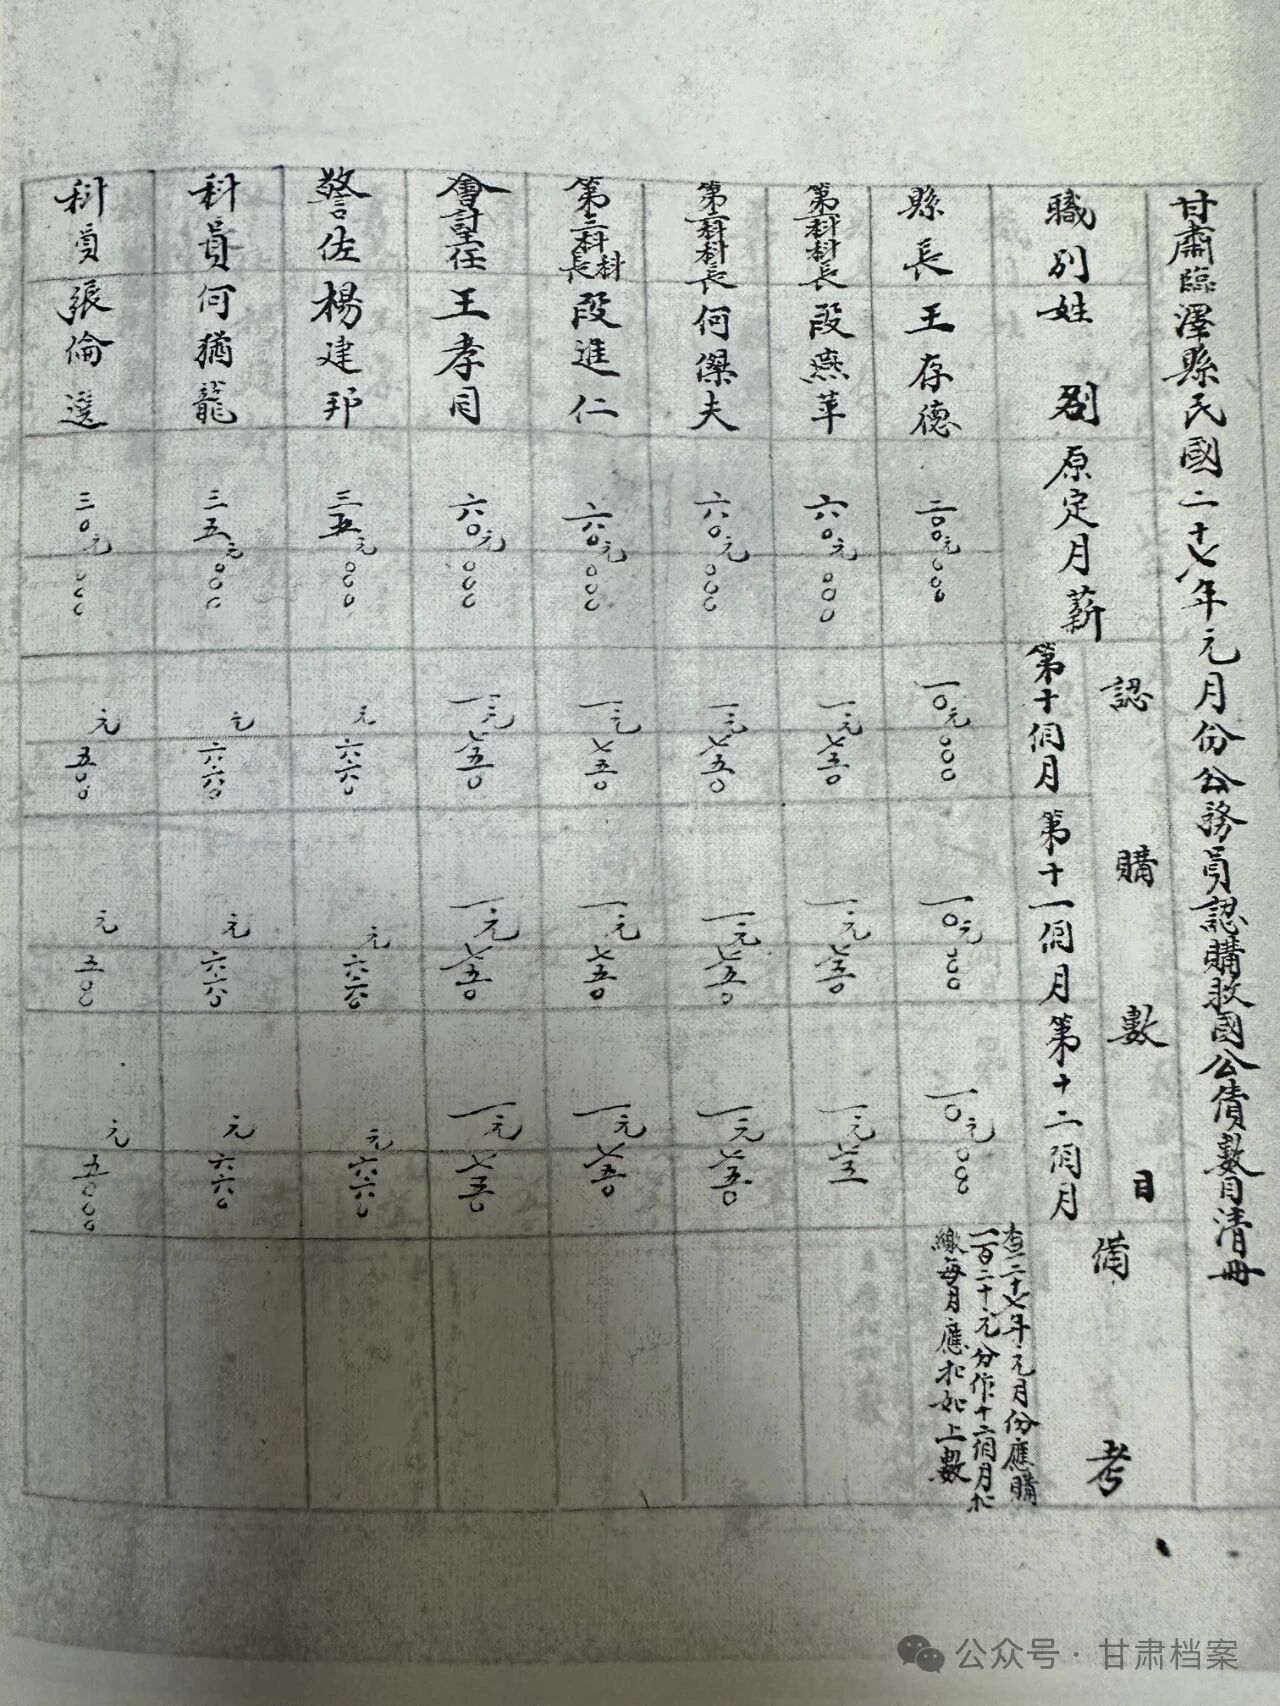 甘肅臨澤縣民國二十七年元月份公務員認購救國公債數目清冊
職別 姓別 原定月薪 認購數目 備考
第十個月 第十一個月 第十二個月
縣長 王存德 二〇〇元〇〇〇 一〇元〇〇〇 一〇元〇〇〇 一〇元〇〇〇
查二十七年元月份應購
一百二十元分作十二個月扣
繳每月應扣如上數
第一科科長 段燕苹 六〇元〇〇〇 一元七五〇 一元七五〇 一元七五
第二科科長 何傑夫 六〇元〇〇〇 一元七五〇 一元七五〇 一元七五〇
第三科科長 段進仁 六〇元〇〇〇 一元七五〇 一元七五〇 一元七五〇
會計主任 王孝同 六〇元〇〇〇 一元七五〇 一元七五〇 一元七五〇
警佐 楊建邦 三五元〇〇〇 元六六〇 元六六〇 元六六〇
科員 何猶龍 三五元〇〇〇 元六六〇 元六六〇 元六六〇
科員 張倫選 三〇元〇〇〇 元五〇〇 元五〇〇 元五〇〇
公众号·甘肃档案